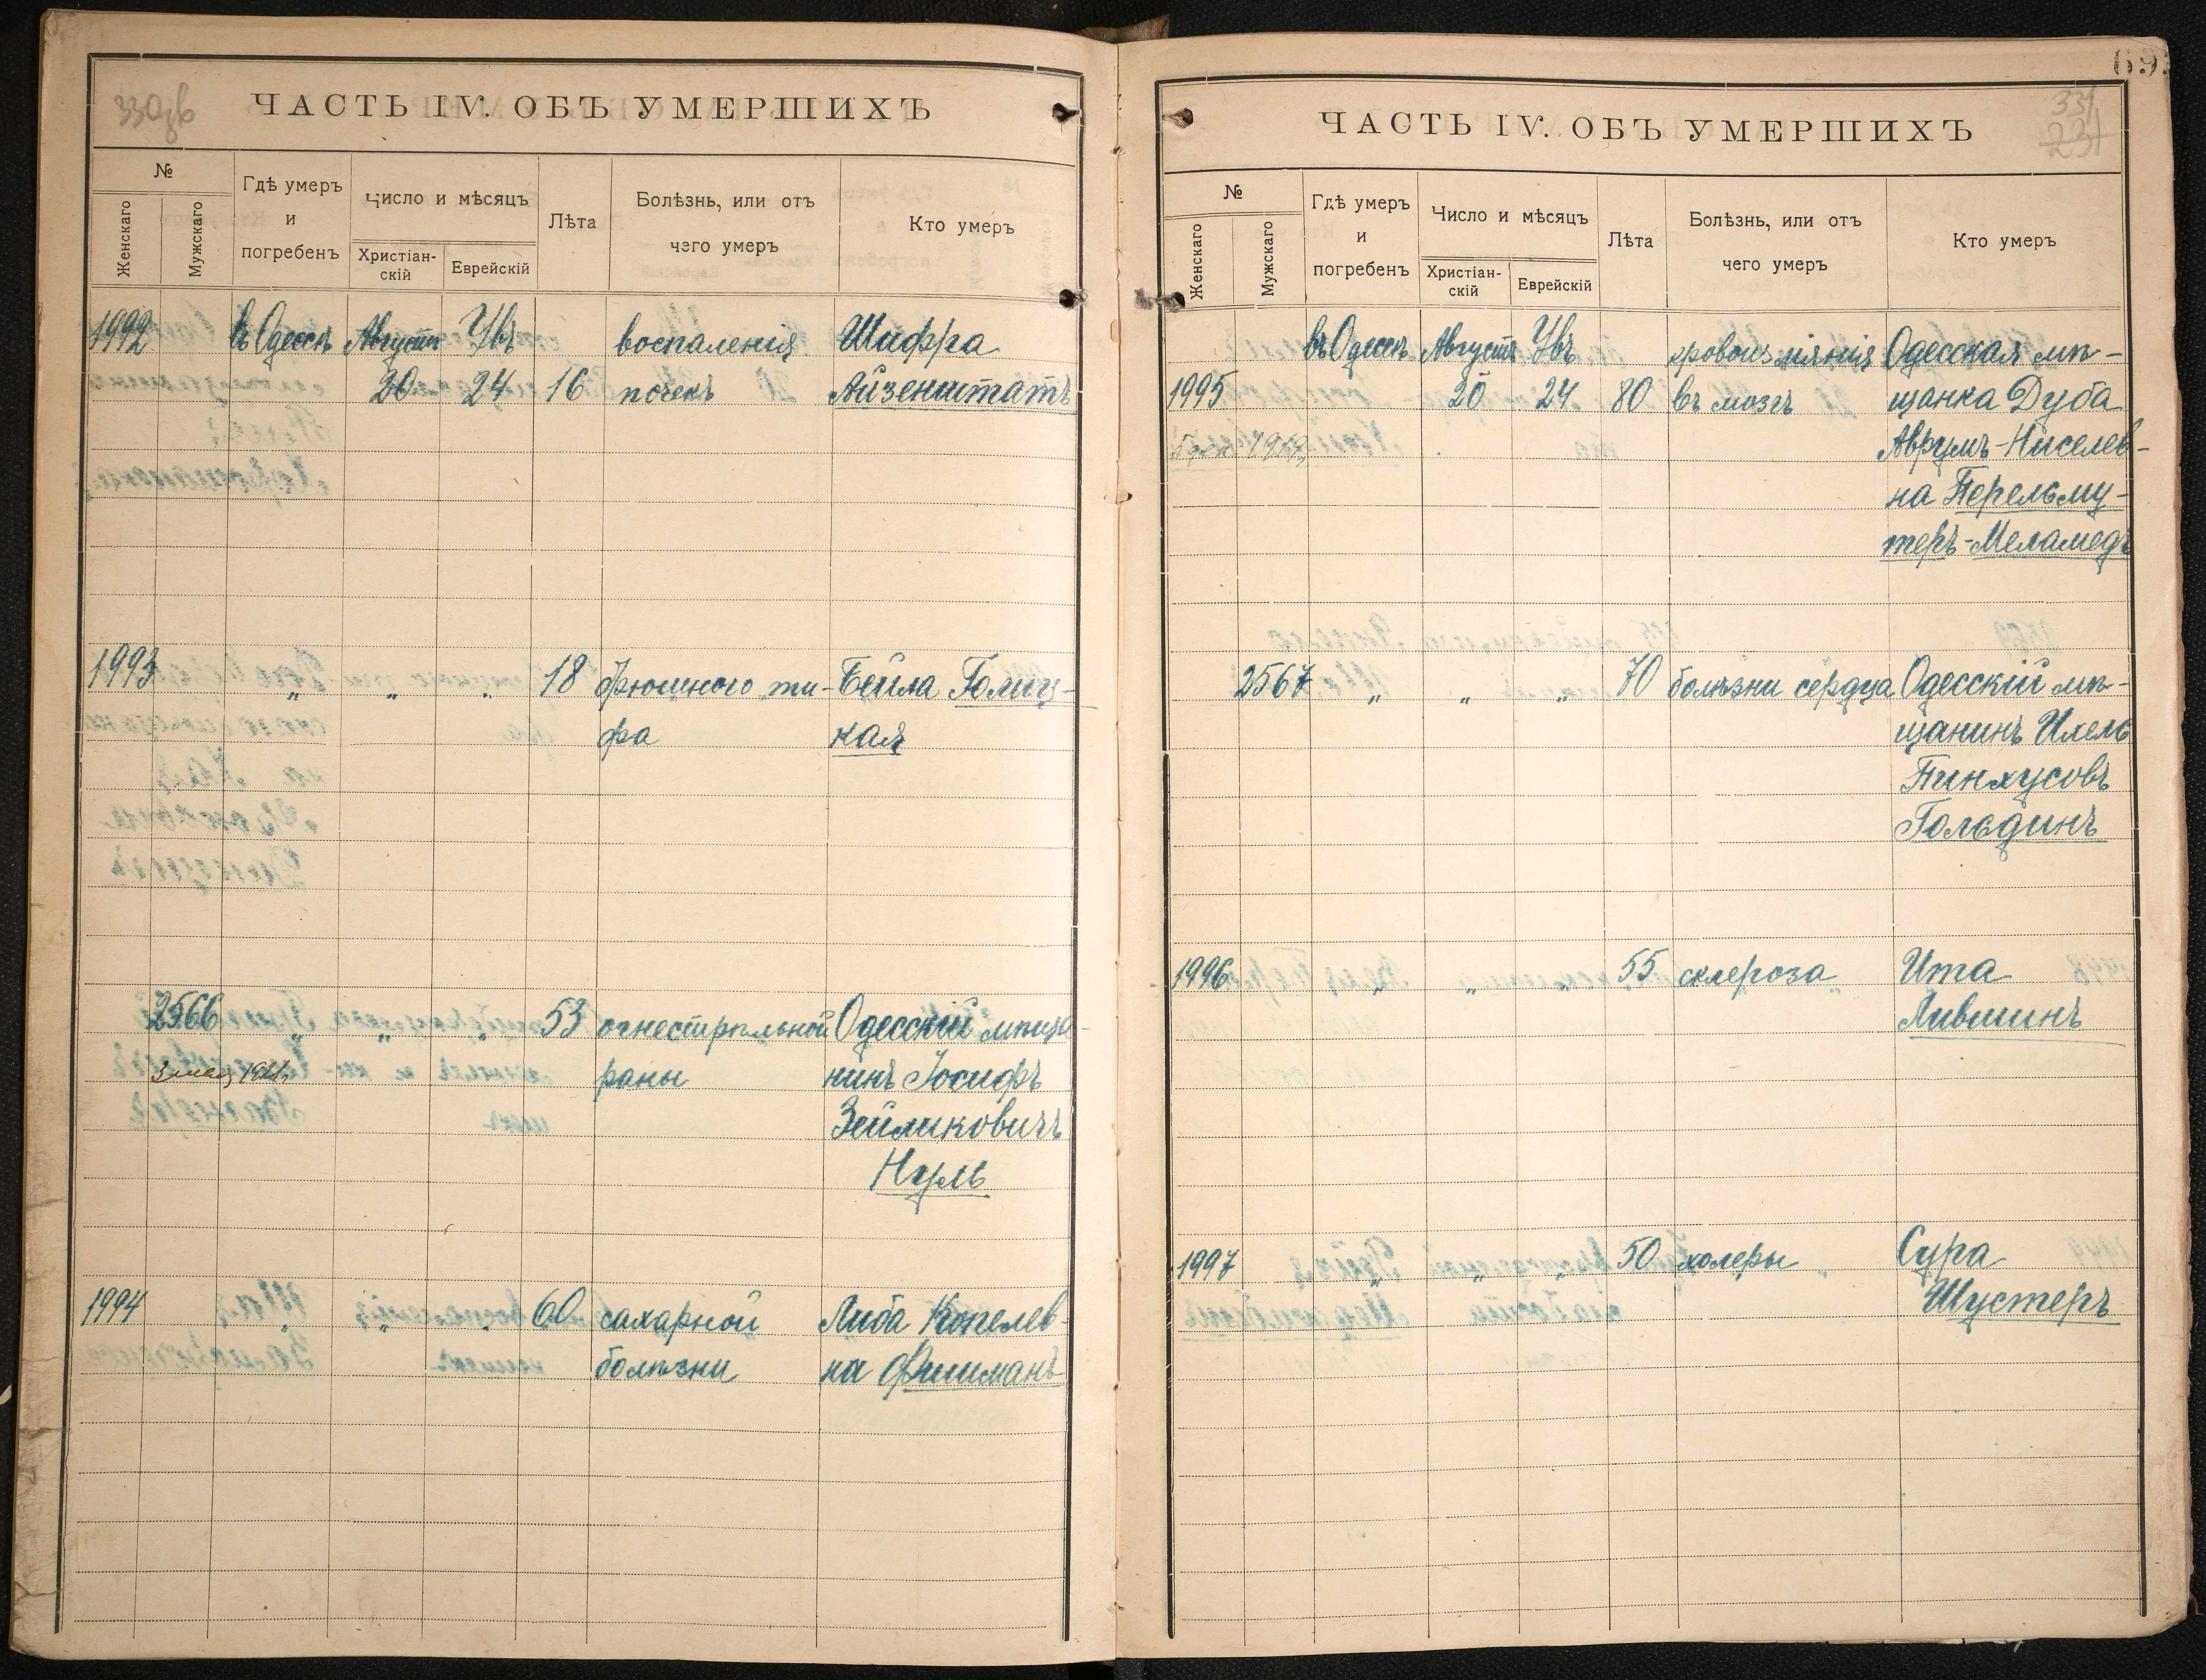 330зв
ЧАСТЬ IV. ОБЪ УМЕРШИХЪ
№
Женскаго
Мужскаго
Гдѣ умеръ
и
погребенъ
Число и мѣсяцъ
Христіан-
скій
Еврейскій
Лѣта
Болѣзнь, или отъ
чего умеръ
Кто умеръ
1992 въ Одессѣ Августъ Увъ воспаленія Шифра
20 24 16 почекъ Айзенштатъ
1993 „ „ „ 18 брюшного ти- Бейла Голиц-
фа кая
2566 „ „ „ 53 огнестрѣльной Одесскій мѣща-
раны нинъ Іосифъ
Зейликовичъ
Нуль
1994 „ „ „ 60 сахарной Либа Копелев-
болѣзни на Фишманъ
69
331
231
ЧАСТЬ IV. ОБЪ УМЕРШИХЪ
№
Женскаго
Мужскаго
Гдѣ умеръ
и
погребенъ
Число и мѣсяцъ
Христіан-
скій
Еврейскій
Лѣта
Болѣзнь, или отъ
чего умеръ
Кто умеръ
въ Одессѣ Августъ Увъ кровоизліянія Одесская мѣ-
1995 20 24 80 въ мозгъ щанка Дуба
Аврумъ-Ниселев-
на Перельму-
теръ-Меламедъ
2567 „ „ „ 70 болѣзни сердца Одесскій мѣ-
щанинъ Ихель
Пинхусовъ
Гольдинъ
1996 „ „ „ 55 склероза Ита
Лившинъ
1997 „ „ „ 50 холеры Сура
Шустеръ